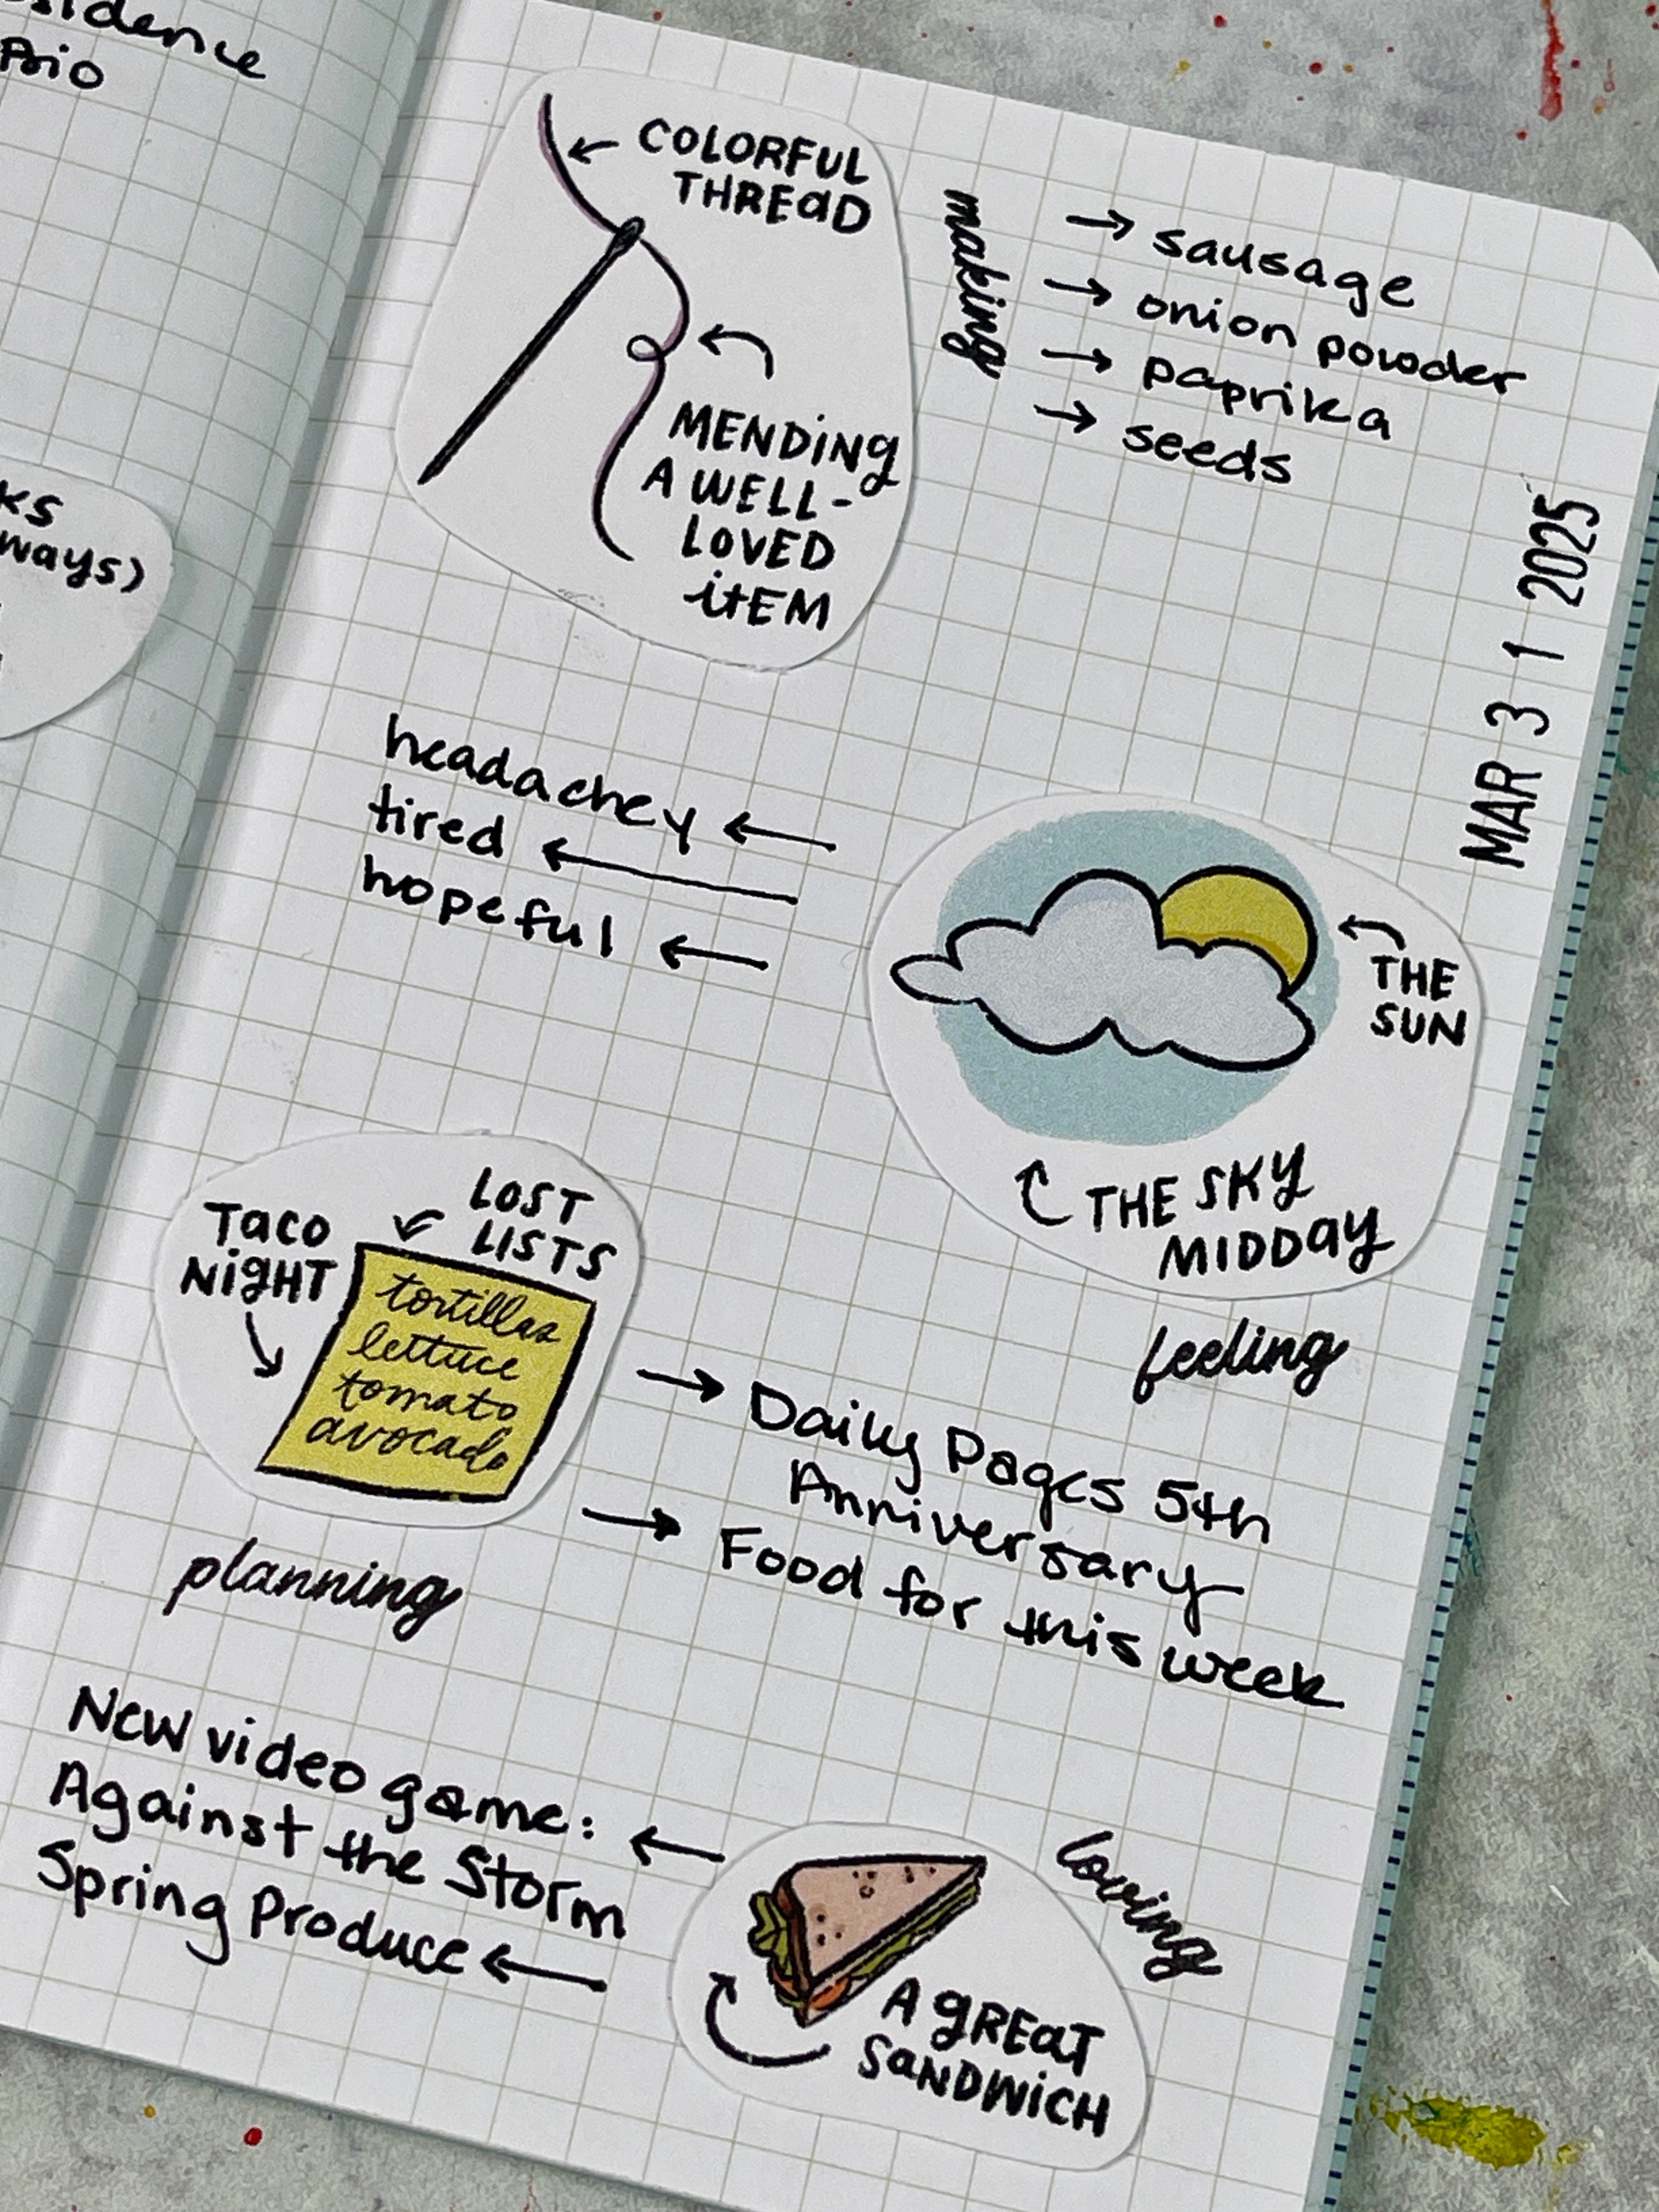 COLORFUL
THREAD
MENDING
A WELL-
LOVED
iTEM
making
→ sausage
→ onion powder
→ paprika
→ seeds
MAR 3 1 2025
headachey ←
tired ←
hopeful ←
THE
SUN
THE SKY
MIDDAY
feeling
TACO
NIGHT
LOST
LISTS
tortillas
lettuce
tomato
avocado
planning
→ Daily Pages 5th
Anniversary
→ Food for this week
New video game: ←
Against the Storm
Spring Produce ←
loving
A GREAT
SANDWICH
ways)